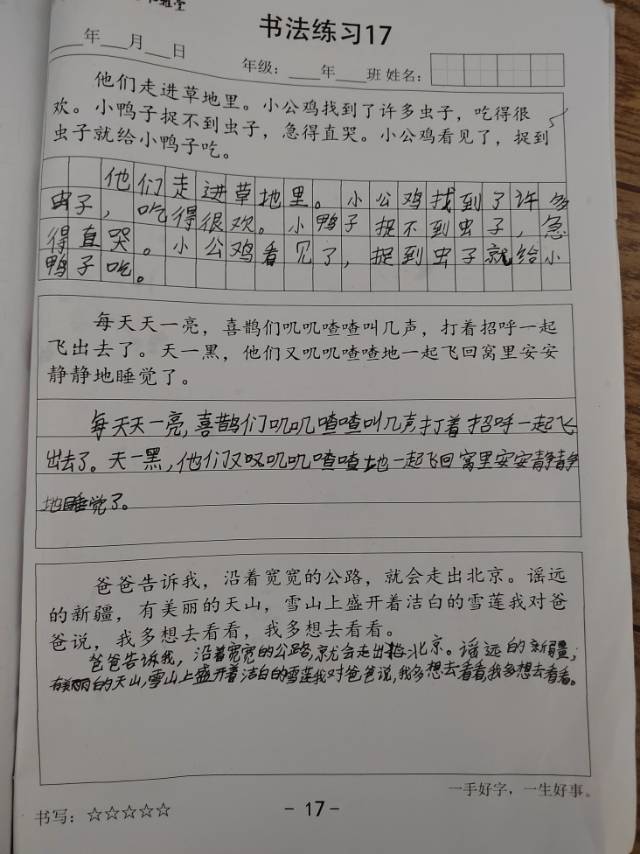 书法练习17
年 月 日
年级： 年 班 姓名：
他们走进草地里。小公鸡找到了许多虫子，吃得很
欢。小鸭子捉不到虫子，急得直哭。小公鸡看见了，捉到
虫子就给小鸭子吃。
他们走进草地里。小公鸡找到了许多
虫子，吃得很欢。小鸭子捉不到虫子，急
得直哭。小公鸡看见了，捉到虫子就给小
鸭子吃。
每天天一亮，喜鹊们叽叽喳喳叫几声，打着招呼一起
飞出去了。天一黑，他们又叽叽喳喳地一起飞回窝里安安
静静地睡觉了。
每天天一亮，喜鹊们叽叽喳喳叫几声打着招呼一起飞
出去了。天一黑，他们又叽叽喳喳地一起飞回窝里安安静静
地睡觉了。
爸爸告诉我，沿着宽宽的公路，就会走出北京。谣远
的新疆，有美丽的天山，雪山上盛开着洁白的雪莲我对爸
爸说，我多想去看看，我多想去看看。
爸爸告诉我，沿着宽宽的公路就会走出北京。谣远的新疆，
有美丽的天山，雪山上盛开着洁白的雪莲我对爸爸说，我多想去看看，我多想去看看。
一手好字，一生好事。
书写：☆☆☆☆☆
- 17 -